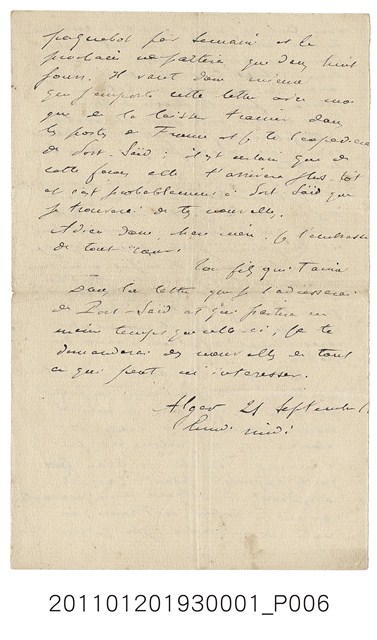 paquebot par semaine et le
prochain ne partira que dans huit
jours. Il vaut donc mieux
que j'emporte cette lettre avec moi
que de la laisser traîner dans
les postes de France et je te l'expédierai
de Port-Saïd ; il est certain que de
cette façon elle t'arrivera plus tôt
et c'est probablement à Port Saïd que
je trouverai de tes nouvelles.
Adieu donc, chère mère, je t'embrasse
de tout cœur.
Ton fils qui t'aime
Dans la lettre que je t'adresserai
de Port-Saïd et qui partira en
même temps que celle-ci, je te
demanderai des nouvelles de tout
ce qui peut m'intéresser.
Alger 21 Septembre
lundi midi
201101201930001_P006